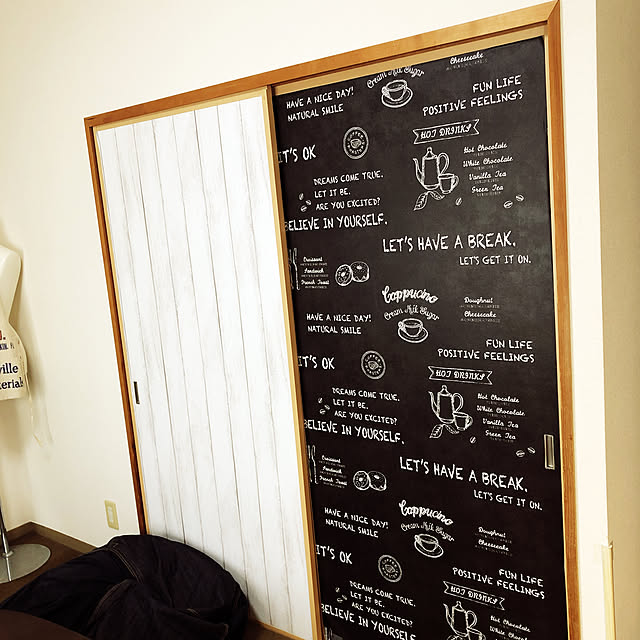 Cheesecake
Cream Milk Sugar
FUN LIFE
POSITIVE FEELINGS
HAVE A NICE DAY!
NATURAL SMILE
HOT DRINKS
IT'S OK
Hot Chocolate
White Chocolate
Vanilla Tea
Green Tea
DREAMS COME TRUE.
LET IT BE.
ARE YOU EXCITED?
BELIEVE IN YOURSELF.
LET'S HAVE A BREAK.
LET'S GET IT ON.
Croissant
Sandwich
French Toast
Cappucino
Cream Milk Sugar
Doughnut
Cheesecake
HAVE A NICE DAY!
NATURAL SMILE
FUN LIFE
POSITIVE FEELINGS
IT'S OK
HOT DRINKS
Hot Chocolate
White Chocolate
Vanilla Tea
Green Tea
DREAMS COME TRUE.
LET IT BE.
ARE YOU EXCITED?
BELIEVE IN YOURSELF.
LET'S HAVE A BREAK.
LET'S GET IT ON.
Croissant
Sandwich
French Toast
Cappucino
Cream Milk Sugar
Doughnut
Cheesecake
HAVE A NICE DAY!
NATURAL SMILE
FUN LIFE
POSITIVE FEELINGS
IT'S OK
HOT DRINKS
Hot Chocolate
White Chocolate
Vanilla Tea
Green Tea
DREAMS COME TRUE.
LET IT BE.
ARE YOU EXCITED?
BELIEVE IN YOURSELF.
ville
terial